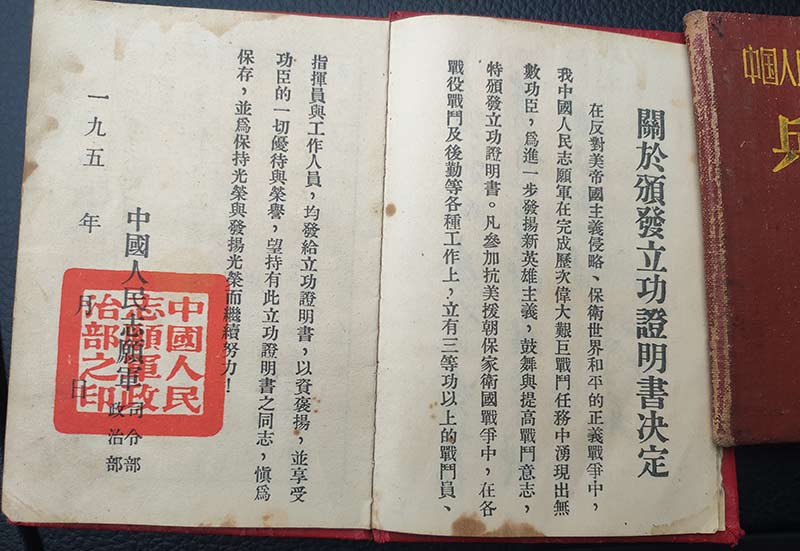 關於頒發立功證明書決定
在反對美帝國主義侵略、保衛世界和平的正義戰爭中,
我中國人民志願軍在完成歷次偉大艱巨戰鬥任務中湧現出無
數功臣,爲進一步發揚新英雄主義,鼓舞與提高戰鬥意志,
特頒發立功證明書。凡參加抗美援朝保家衛國戰爭中,在各
戰役戰鬥及後勤等各種工作上,立有三等功以上的戰鬥員、
指揮員與工作人員,均發給立功證明書,以資褒揚,並享受
功臣的一切優待與榮譽,望持有此立功證明書之同志,愼爲
保存,並爲保持光榮與發揚光榮而繼續努力!
中國人民志願軍
司令部
政治部
一九五 年 月 日
中國人民
志願軍政
治部之印
中国人民
兵